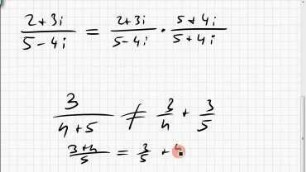 (2+3i)/(5-4i) = (2+3i)/(5-4i) · (5+4i)/(5+4i)
3/(4+5) ≠ 3/4 + 3/5
(3+4)/5 = 3/5 +